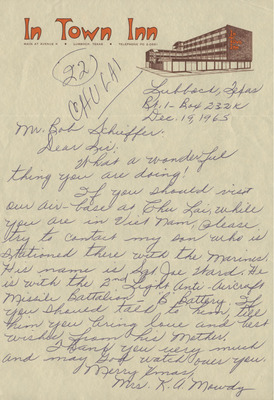 In Town Inn
LUBBOCK, TEXAS
22
CHU LAI
Lubbock, Texas
Rt. 1 - Box 232K
Dec. 19, 1965
Mr. Bob Schieffer:
Dear Sir:
What a wonderful
thing you are doing!
If you should visit
our air-base at Chu Lai, while
you are in Viet Nam, please
try to contact my son who is
stationed there with the Marines.
His name is Sgt. Joe Ward. He
is with the 2nd Light Anti-Aircraft
Missile Battalion - B Battery. If
you should talk to him, tell
him you bring love and best
wishes from his Mother,
I thank you very much
and may God watch over you.
Merry Xmas,
Mrs. R. A. Mowdy